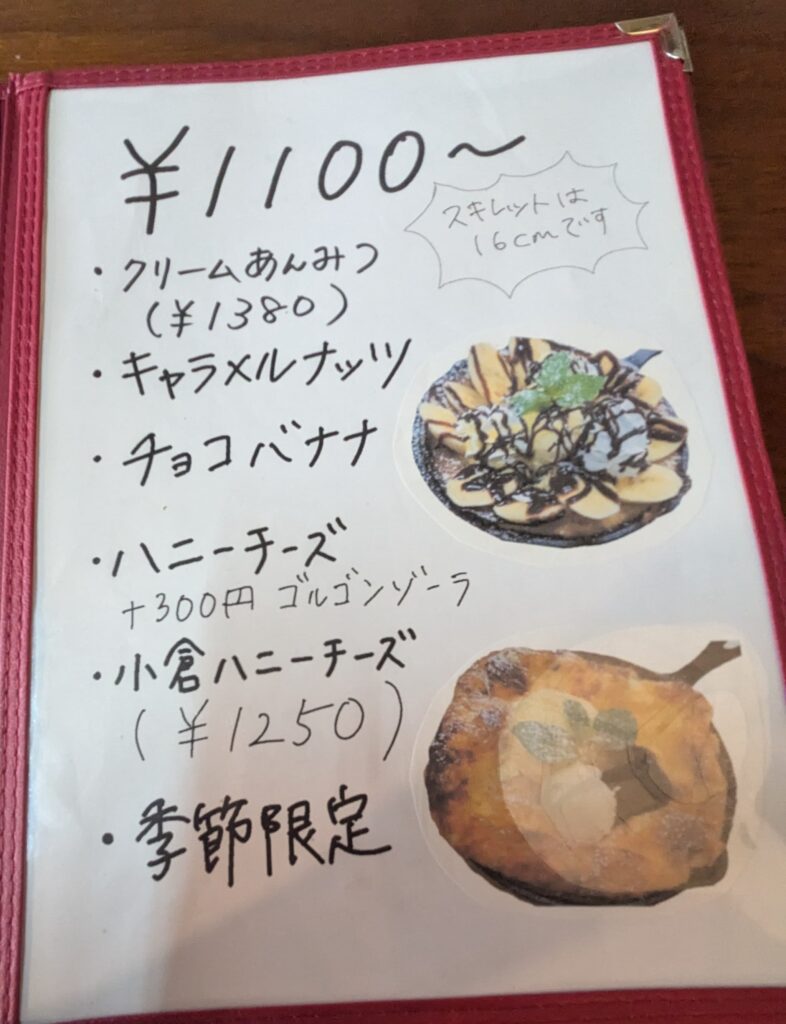 ¥1100〜
スキレットは
16cmです
・クリームあんみつ
(¥1380)
・キャラメルナッツ
・チョコバナナ
・ハニーチーズ
+300円 ゴルゴンゾーラ
・小倉ハニーチーズ
(¥1250)
・季節限定